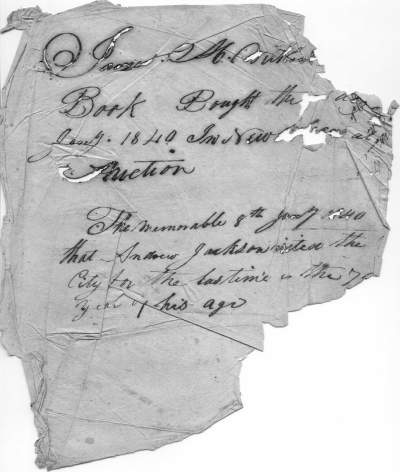 James M.
Book Bought the
Jany. 1840 In New Orleans at
Auction
The memorable 8th Jany 1840
that Andrew Jackson visited the
City for the last time in the 7
year of his age